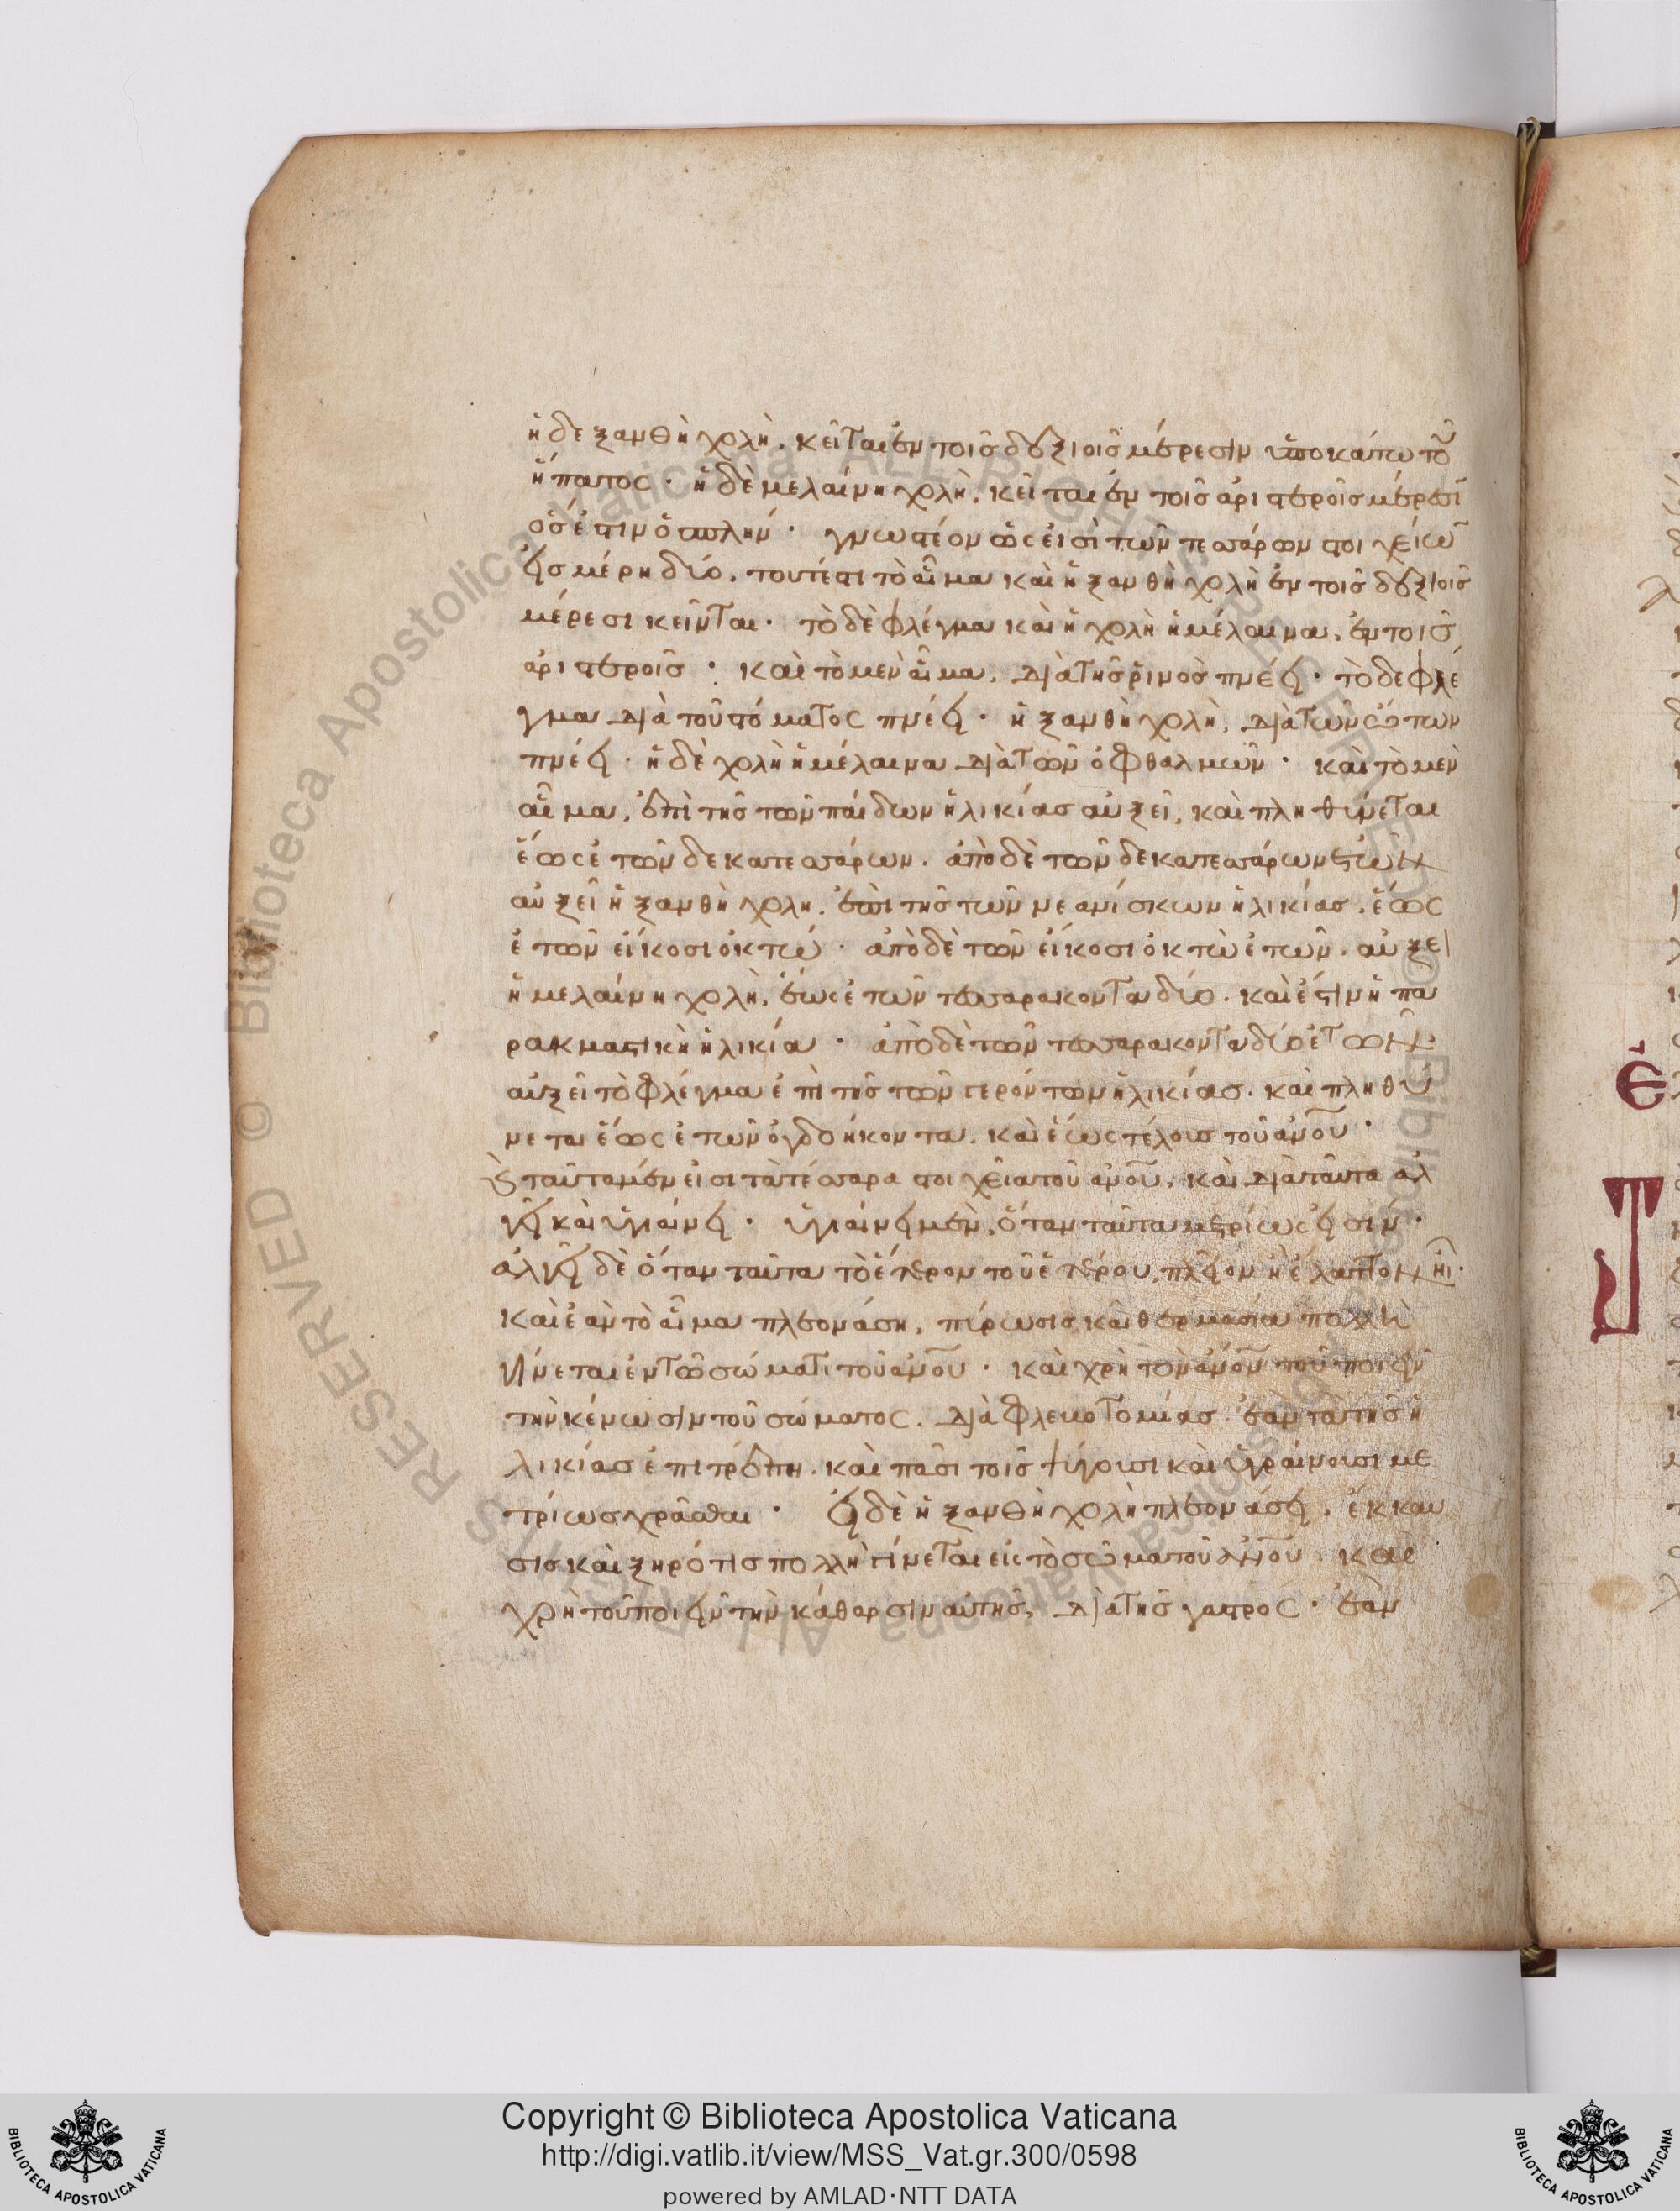 ἡ δε ξανθὴ χολὴ, κεῖται ἐν τοῖς δεξιοῖς μέρεσιν ὑποκάτω τοῦ
ἥπατος · ἡ δὲ μελαίνη χολὴ, κεῖται ἐν τοῖς ἀριστεροῖς μέρεσῖ
ὅς ἐστιν ὁ σπλὴν · γνωστέον ὡς εἰσὶ τῶν τεσσάρων στοιχείων
εἰς μέρη δύο. τουτέστι τὸ αἷμα καὶ ἡ ξανθὴ χολὴ ἐν τοῖς δεξιοῖς
μέρεσι κεῖνται · τὸ δὲ φλέγμα καὶ ἡ χολὴ ἡ μέλαινα, ἐν τοῖς
ἀριστεροῖς · καὶ τὸ μὲν αἷμα, διὰ τῆς ῥινὸς πνέει · τὸ δε φλέ
γμα διὰ τοῦ στόματος πνέει · ἡ ξανθὴ χολὴ, διὰ τῶν ὤτων
πνέει · ἡ δὲ χολὴ ἡ μέλαινα διὰ τῶν ὀφθαλμῶν · καὶ τὸ μὲν
αἷμα, ἐπὶ τῆς τῶν παίδων ἡλικίας αὐξεῖ, καὶ πληθύνεται
ἕως ἐτῶν δεκατεσσάρων. ἀπὸ δὲ τῶν δεκατεσσάρων ἐτῶν
αὐξεῖ ἡ ξανθὴ χολη. ἐπὶ τῆς τῶν νεανίσκων ἡλικίας. ἕως
ἐτῶν εἰκοσιοκτώ · ἀπὸ δὲ τῶν εἰκοσιοκτὼ ἐτῶν. αὐξει
ἡ μελαίνη χολὴ, ἕως ἐτῶν τεσσαρακονταδύο. καὶ ἐστιν ἡ πα
ρακμαστικὴ ἡλικία · ἀπὸ δὲ τῶν τεσσαρακονταδύο ἐτῶν
αὐξεῖ τὸ φλέγμα ἐπὶ τῆς τῶν γερόντων ἡλικίας. καὶ πληθύ
νεται ἕως ἐτῶν ὀγδοήκοντα. καὶ ἕως τέλους τοῦ ἀνοῦ ·
ταῦτα μέν εἰσι τὰ τέσσαρα στοιχεῖα τοῦ ἀνοῦ, καὶ διὰ ταῦτα ἀλ
γεῖ καὶ ὑγιαίνει · ὑγιαίνει μὲν, ὅταν ταῦτα μετρίως εἰσιν ·
ἀλγεῖ δὲ ὅταν ταῦτα τὸ ἕτερον τοῦ ἑτέρου, πλεῖον ἢ ἐλαττον ἦι ·
καὶ ἐὰν τὸ αἷμα πλεονάση, πύρωσις καὶ θερμασία πολλὴ
γίνεται ἐν τῶ σώματι τοῦ ἀνοῦ · καὶ χρὴ τὸν ἀνον τοῦ ποιεῖν
τὴν κένωσιν τοῦ σώματος. διὰ φλεβοτομίας. ἐὰν τὰ τῆς ἡ
λικίας ἐπιτρέπη. καὶ πᾶσι τοῖς ψύχουσι καὶ ὑγραίνουσι με
τρίως χρᾶσθαι · εἰ δὲ ἡ ξανθὴ χολὴ πλεονάσει, ἔκκαυ
σις καὶ ξηρότις πολλὴ γίνεται εἰς τὸ σῶμα τοῦ ἀνοῦ. καὶ
χρὴ τοῦ ποιεῖν τὴν κάθαρσιν αὐτῆς, διὰ τῆς γαστρὸς · ἐὰν
Copyright © Biblioteca Apostolica Vaticana
http://digi.vatlib.it/view/MSS_Vat.gr.300/0598
powered by AMLAD·NTT DATA